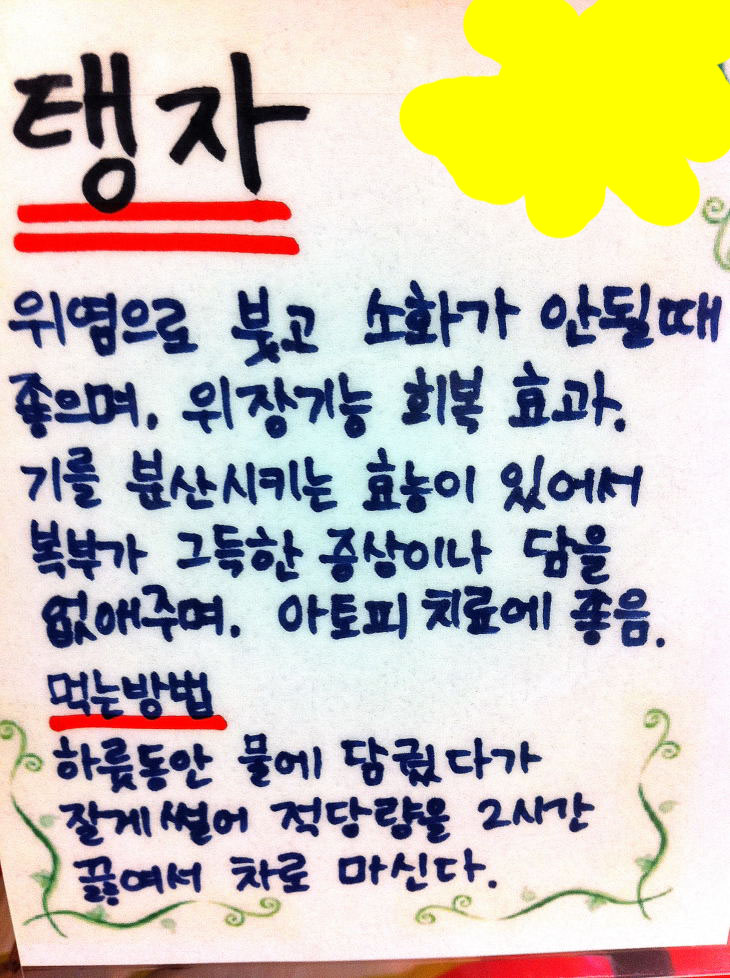 탱자
위염으로 붓고 소화가 안될때
좋으며, 위장기능 회복 효과.
기를 분산시키는 효능이 있어서
복부가 그득한 증상이나 담을
없애주며, 아토피 치료에 좋음.
먹는방법
하룻동안 물에 담궜다가
잘게썰어 적당량을 2시간
끓여서 차로 마신다.